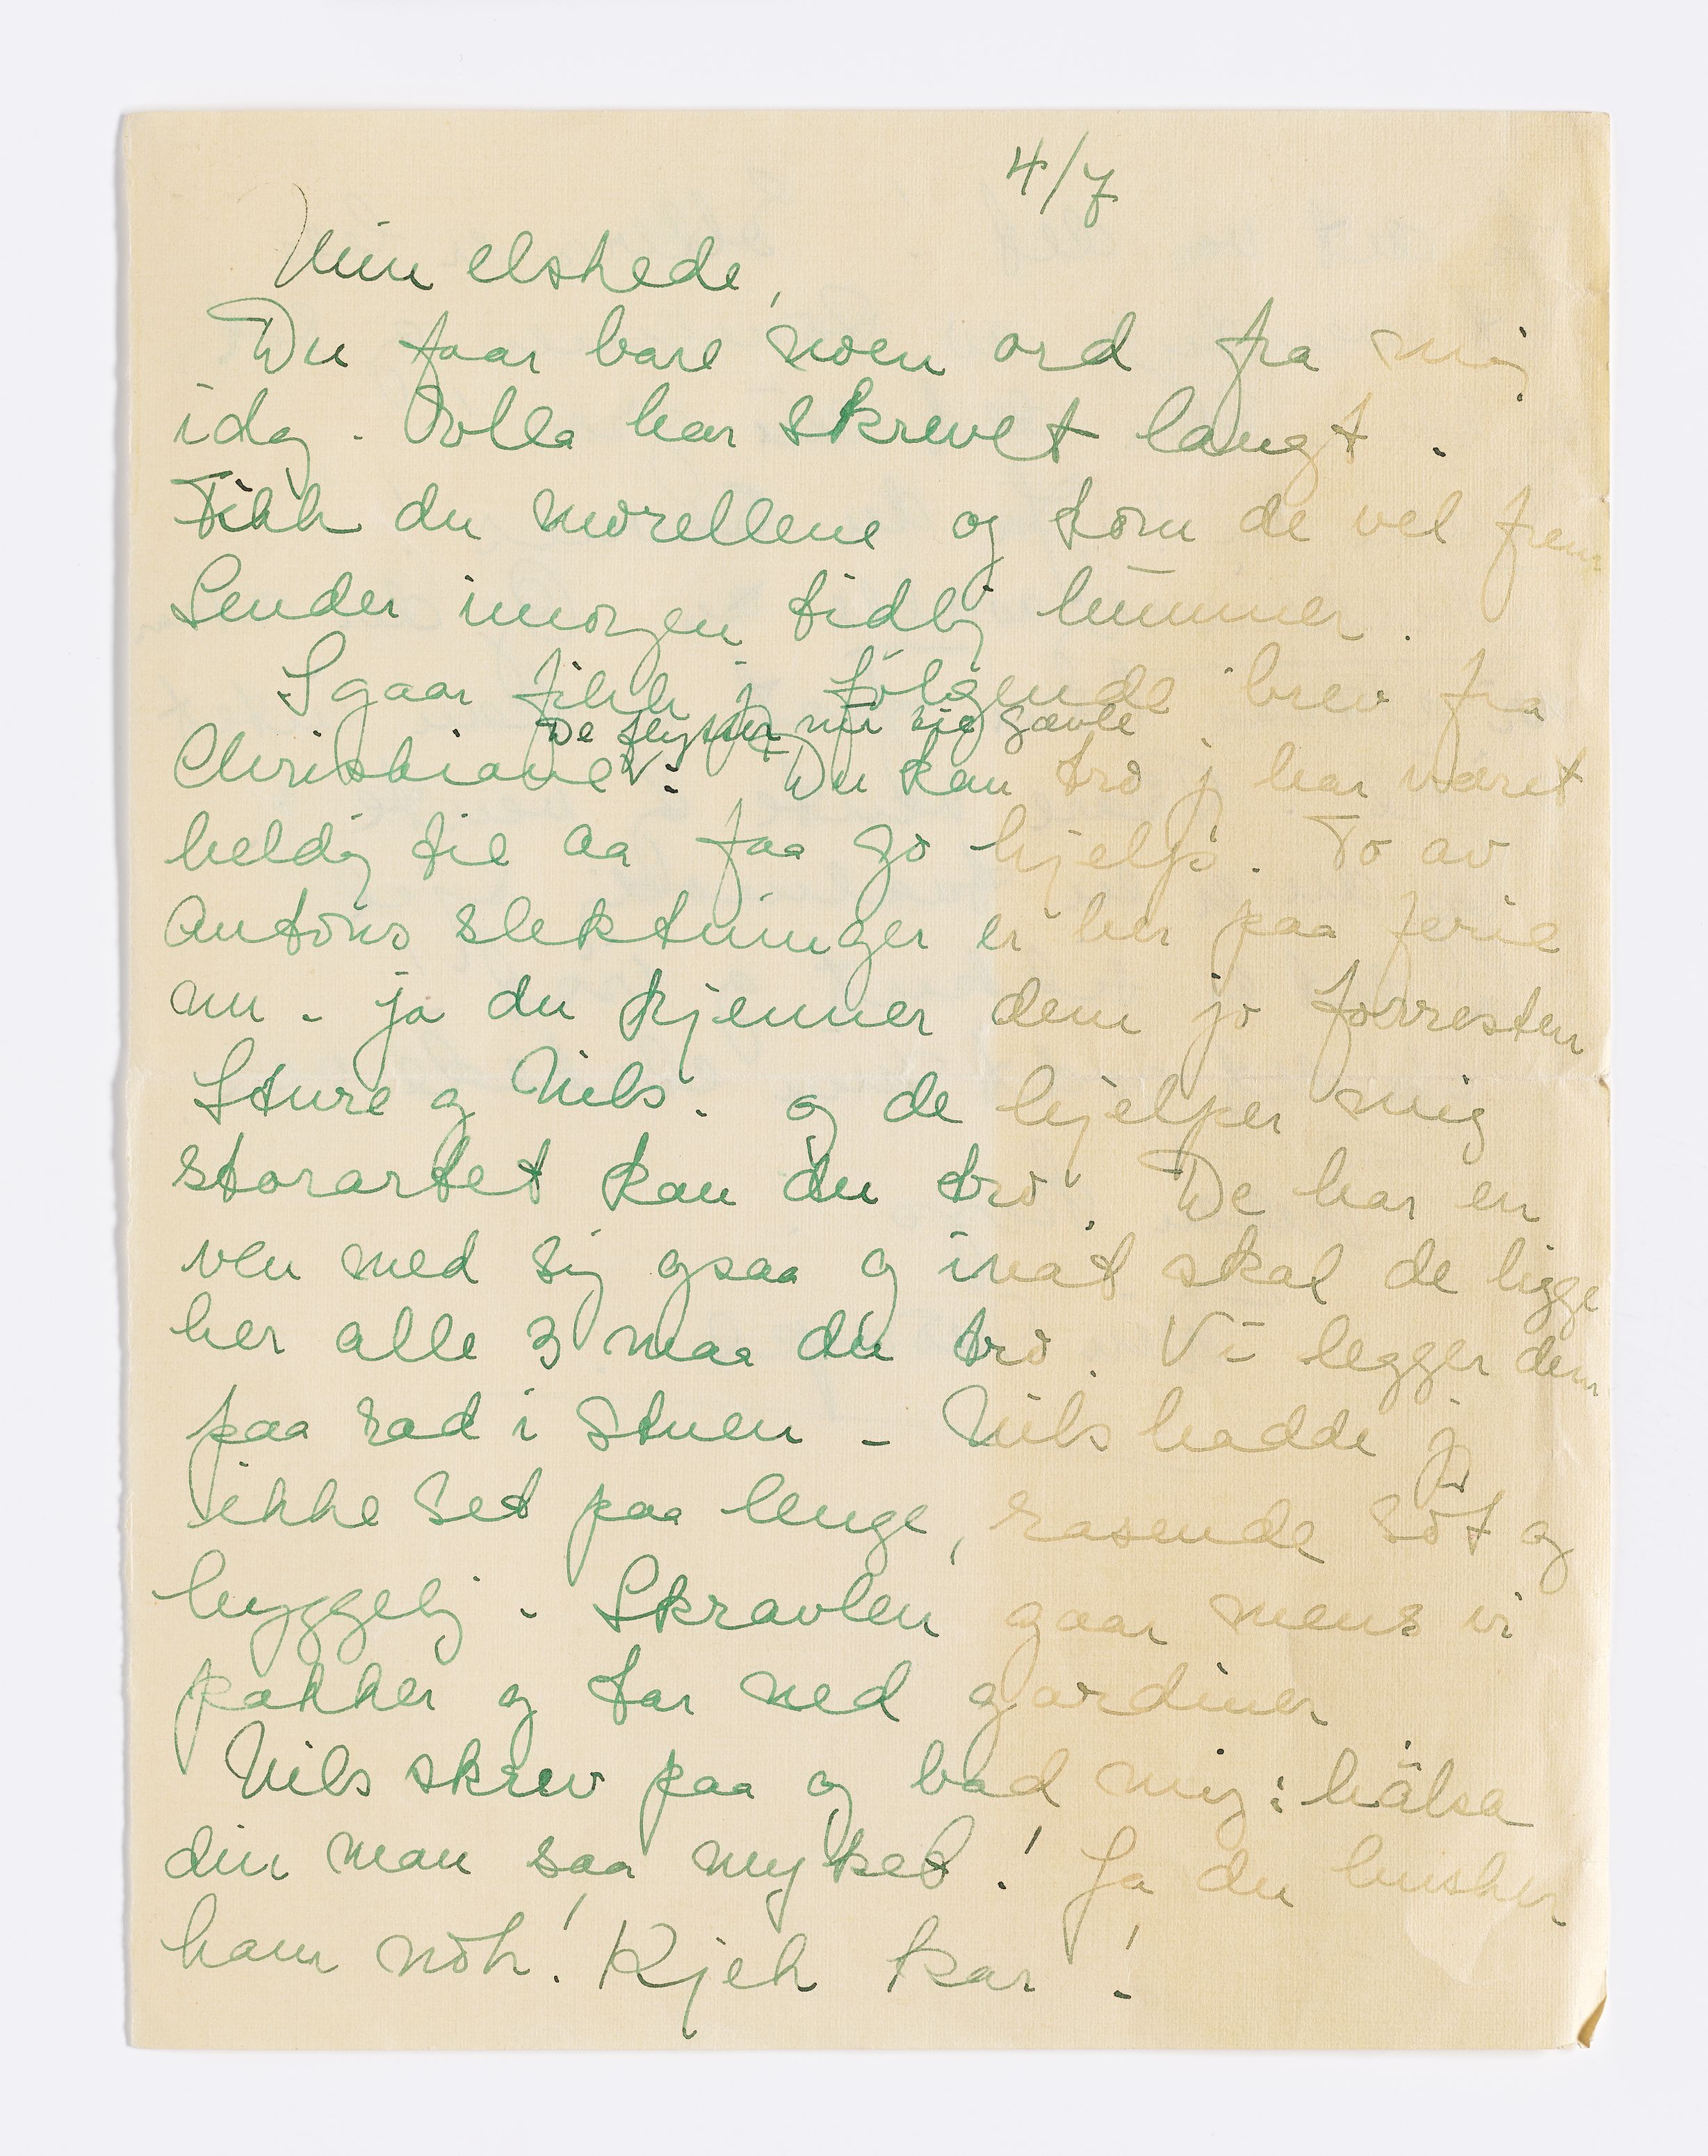 4/7
Min elskede,
Du faar bare noen ord fra mig
idag. Rolla har skrevet langt.
Fikk du morellene og kom de vel frem
Sender imorgen tidlig hummer.
Igaar fikk j følgende brev fra
De flytter nu til Gävle
Christiane: Du kan tro j har været
heldig til aa faa go hjelp. To av
Antons slektninger er her paa ferie
nu - ja du kjenner dem jo forresten
Sture og Nils. og de hjelper mig
storartet kan du tro. De har en
ven med sig ogsaa og inat skal de ligge
her alle 3 maa du tro. Vi legger dem
paa rad i stuen - Nils hadde j
ikke set paa lenge, rasende søt og
hyggelig. Skravlen gaar mens vi
pakker og tar ned gardiner
Nils skrev paa og bad mig: hälsa
din man saa myket! Ja du husker
ham nok! Kjek kar!